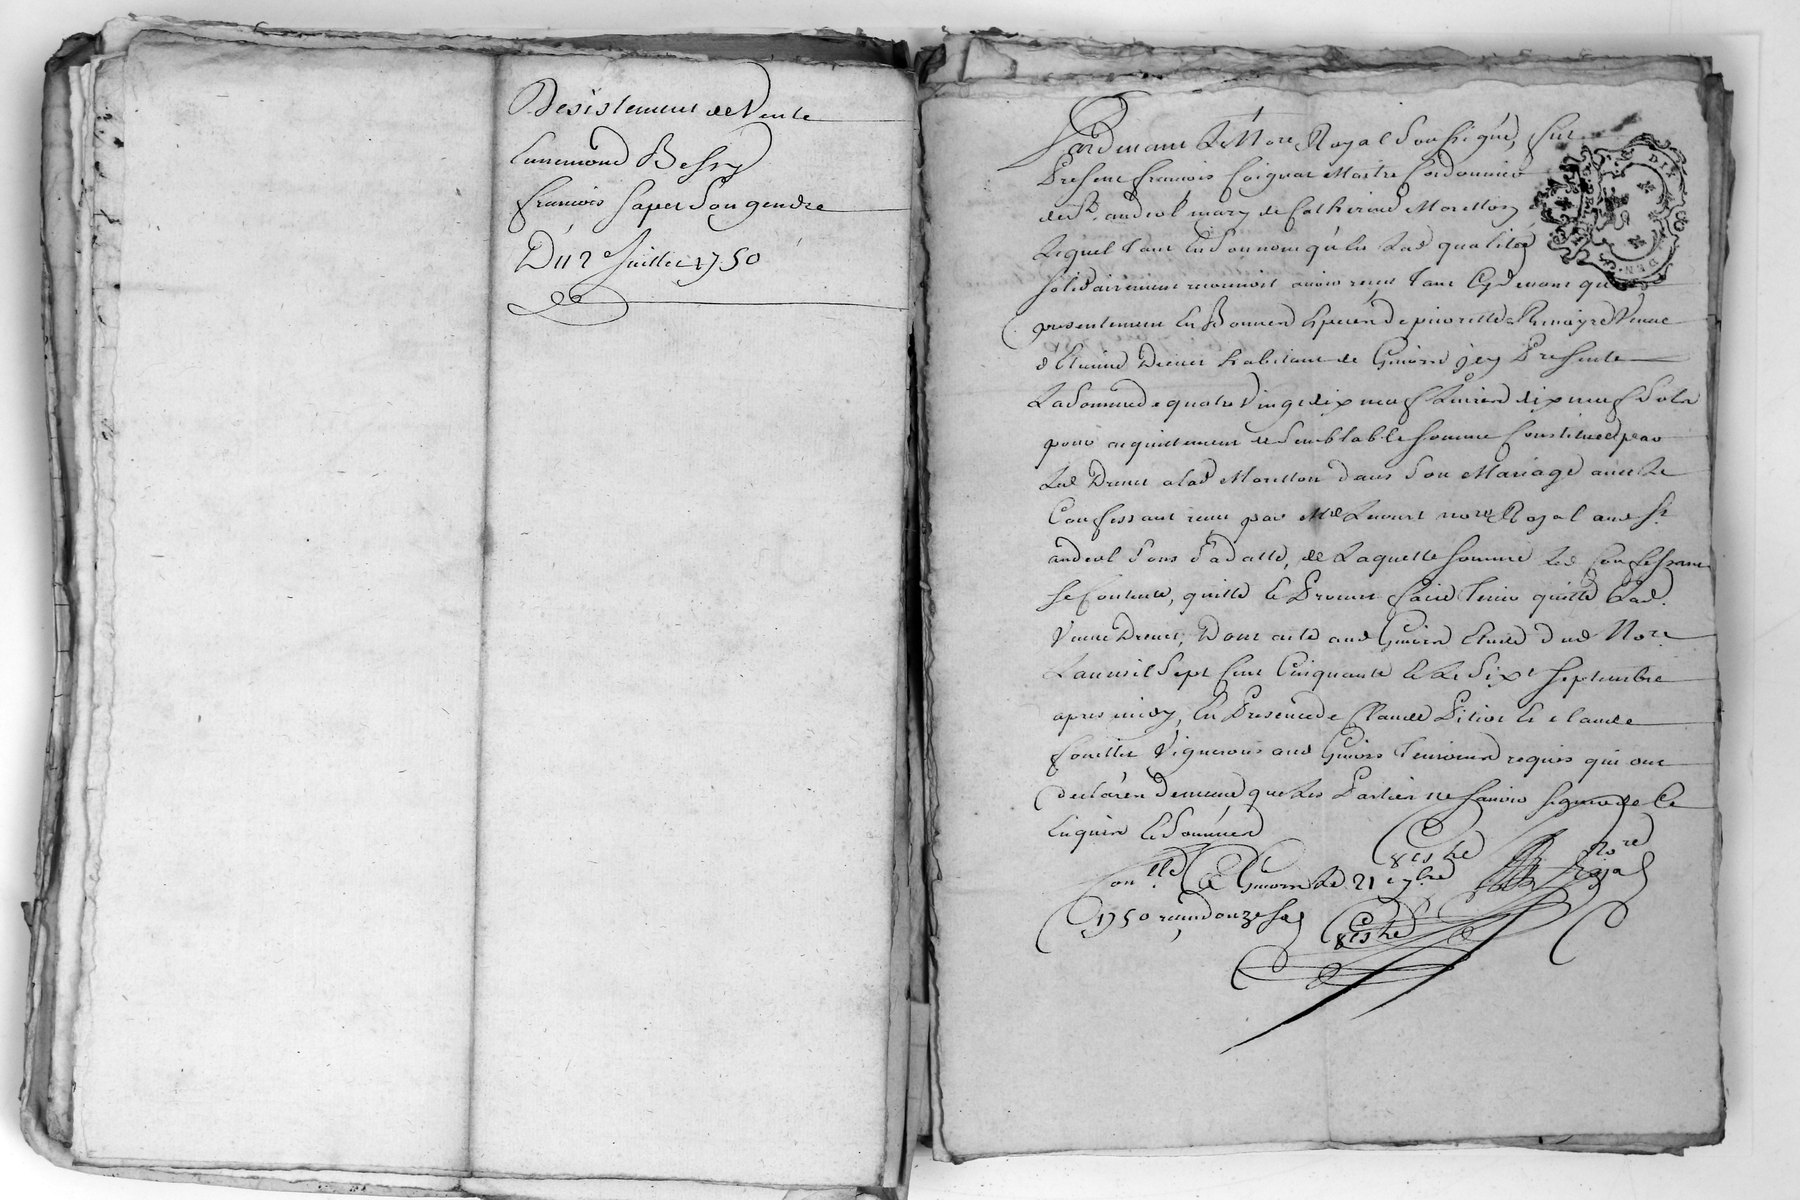 Desistement de Vente
Ennemond Bessy
francois sapet Son gendre
Du 2e Juillet 1750
Pardevant Le Nore Royal Soussigné, fut
Present francois Coignat Maitre Cordonnier
de St. andeol mary de Catherine Moretton
Lequel tant En Son nom qu'En Lad qualité
solidairement reconnoit avoir reçu tant Cydevant que
presentement En Bonnes Especes de Veuve
d'Etienne Drevet habitant de Givors jcy Presente
La Somme de quatre Vingt dix neuf Livres dix neuf Sols
pour acquittement de Semblable somme Constituee par
Led Drevet a lad Moretton dans Son Mariage avec Le
Confessant reçu par Me nore Royal aud St
andeol Sous Sa datte, de Laquelle somme Led Confessant
se Contente, quitte & Promet faire tenir quitte lad.
Veuve Drevet, Dont acte aud Givors Etude dud Nore
Lan mil Sept Cent Cinquante & Le Sixe septembre
apres midy, En Presence de Claude & claude
Vignerons aud Givors temoins requis qui ont
declaré de meme que les Parties ne sauoir signer de Ce
Enquis & Sommés
nore
Royal
Conllé a Givors Le 21 7bre
1750 reçu douze sols